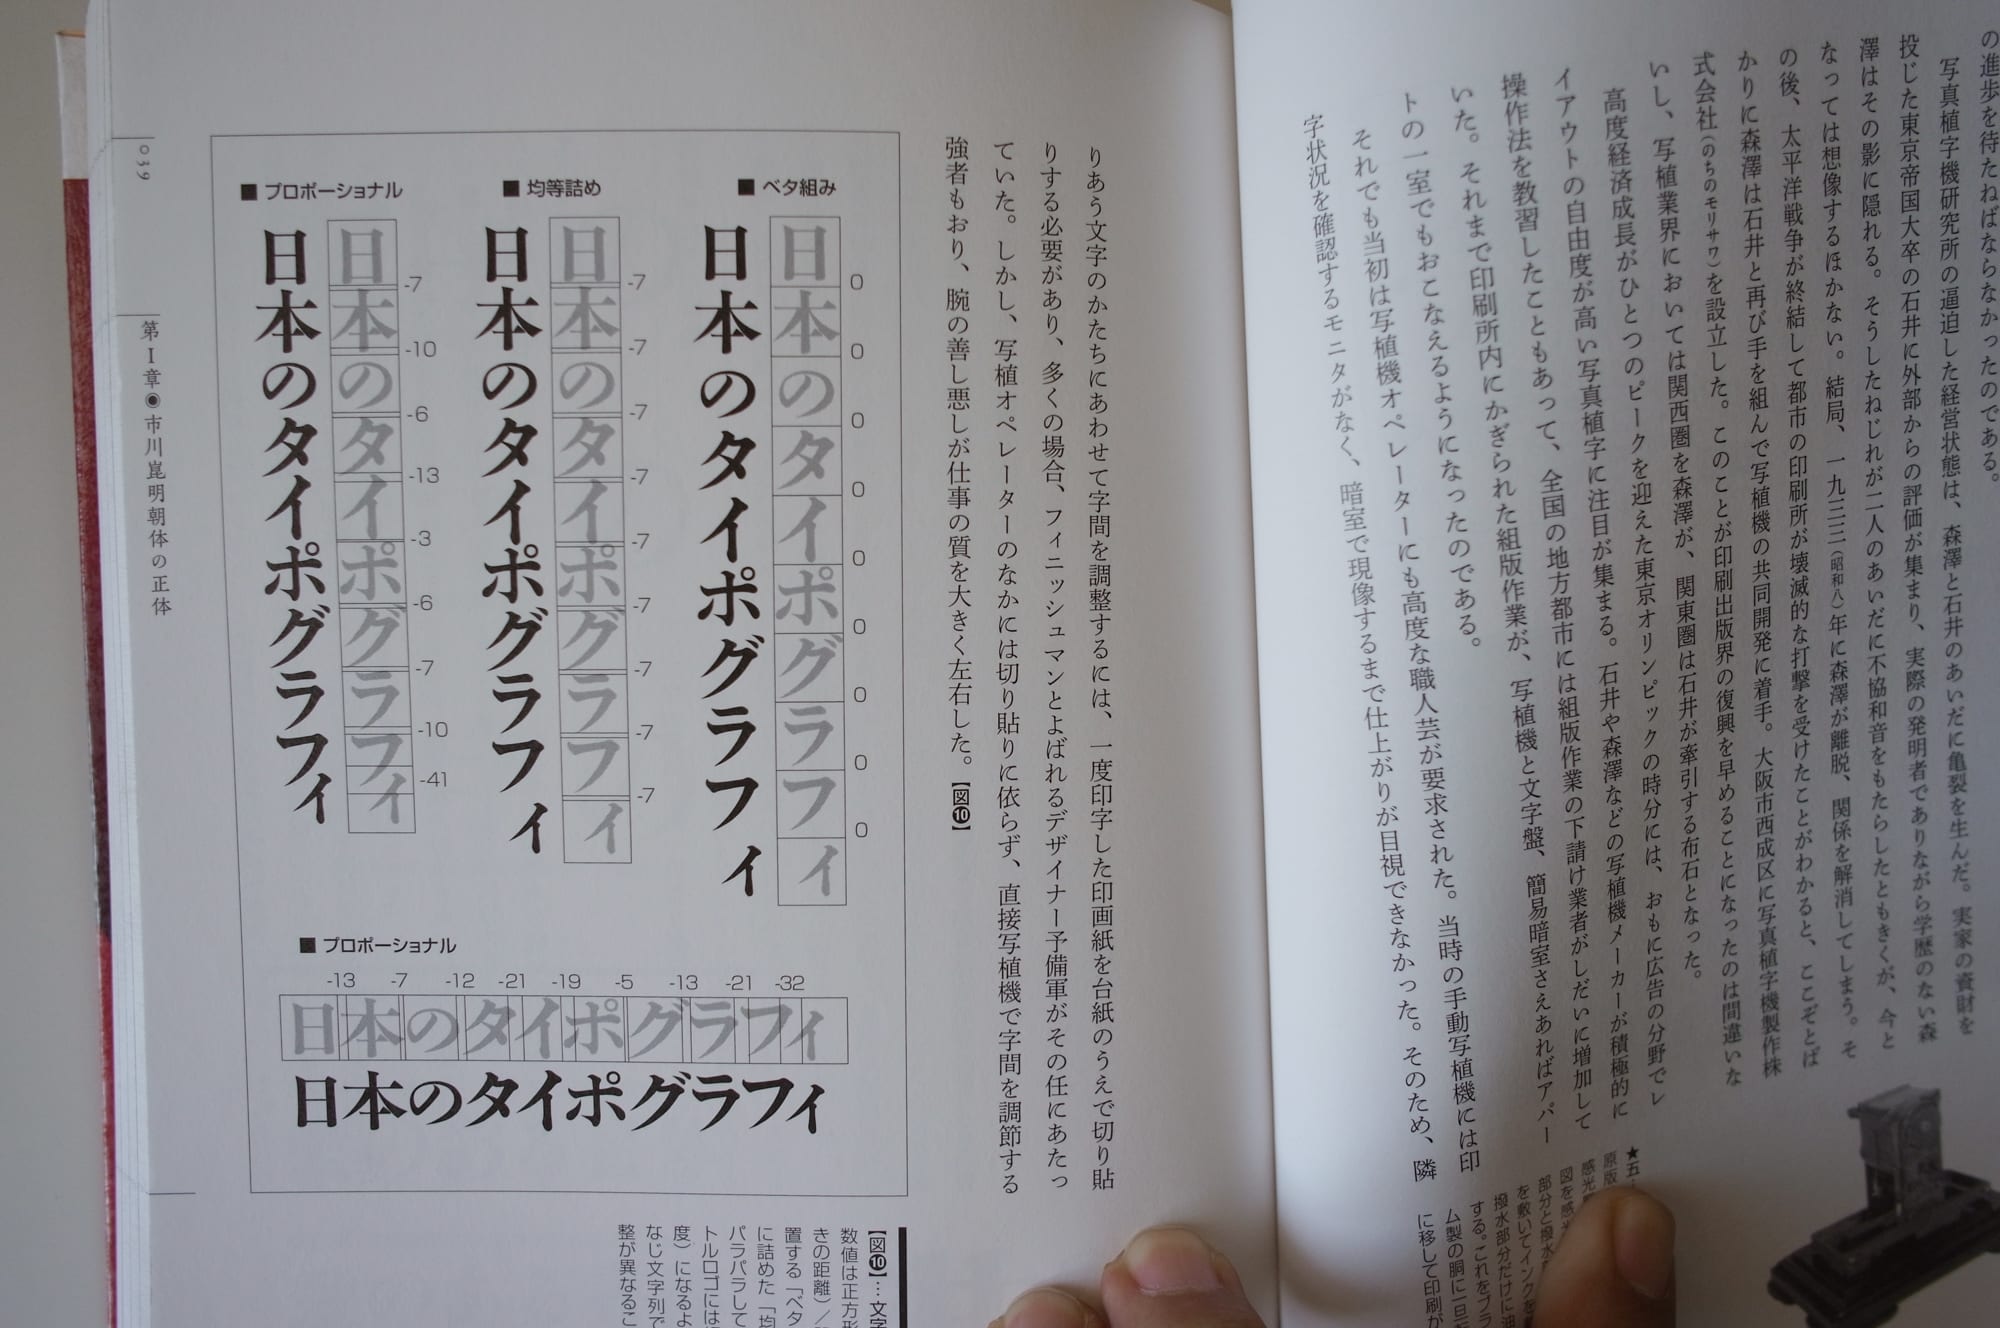 の進歩を待たねばならなかったのである。
写真植字機研究所の逼迫した経営状態は、森澤と石井のあいだに亀裂を生んだ。実家の資財を
投じた東京帝国大卒の石井に外部からの評価が集まり、実際の発明者でありながら学歴のない森
澤はその影に隠れる。そうしたねじれが二人のあいだに不協和音をもたらしたともきくが、今と
なっては想像するほかない。結局、一九三三(昭和八)年に森澤が離脱、関係を解消してしまう。そ
の後、太平洋戦争が終結して都市の印刷所が壊滅的な打撃を受けたことがわかると、ここぞとば
かりに森澤は石井と再び手を組んで写植機の共同開発に着手。大阪市西成区に写真植字機製作株
式会社(のちのモリサワ)を設立した。このことが印刷出版界の復興を早めることになったのは間違いな
いし、写植業界においては関西圏を森澤が、関東圏は石井が牽引する布石となった。
高度経済成長がひとつのピークを迎えた東京オリンピックの時分には、おもに広告の分野でレ
イアウトの自由度が高い写真植字に注目が集まる。石井や森澤などの写植機メーカーが積極的に
操作法を教習したこともあって、全国の地方都市には組版作業の下請け業者がしだいに増加して
いた。それまで印刷所内にかぎられた組版作業が、写植機と文字盤、簡易暗室さえあればアパー
トの一室でもおこなえるようになったのである。
それでも当初は写植機オペレーターにも高度な職人芸が要求された。当時の手動写植機には印
字状況を確認するモニタがなく、暗室で現像するまで仕上がりが目視できなかった。そのため、隣
★五
原版
図を感光
部分と撥水
を敷いてインクを
撥水部分だけに油
する。これをブラ
ム製の胴に一旦
に移して印刷が
りあう文字のかたちにあわせて字間を調整するには、一度印字した印画紙を台紙のうえで切り貼
りする必要があり、多くの場合、フィニッシュマンとよばれるデザイナー予備軍がその任にあたっ
ていた。しかし、写植オペレーターのなかには切り貼りに依らず、直接写植機で字間を調節する
強者もおり、腕の善し悪しが仕事の質を大きく左右した。【図❿】
■ ベタ組み
日本のタイポグラフィ
0
0
0
0
0
0
0
0
0
日本のタイポグラフィ
■ 均等詰め
日本のタイポグラフィ
-7
-7
-7
-7
-7
-7
-7
-7
-7
日本のタイポグラフィ
■ プロポーショナル
日本のタイポグラフィ
-7
-10
-6
-13
-3
-6
-7
-10
-41
日本のタイポグラフィ
■ プロポーショナル
-13 -7 -12 -21 -19 -5 -13 -21 -32
日本のタイポグラフィ
日本のタイポグラフィ
【図❿】…文字
数値は正方形
きの距離)/
置する「ベタ
に詰めた「均
パラパラして
トルロゴには
度)になるよ
なじ文字列で
整が異なるこ
039
第Ⅰ章◉市川崑明朝体の正体